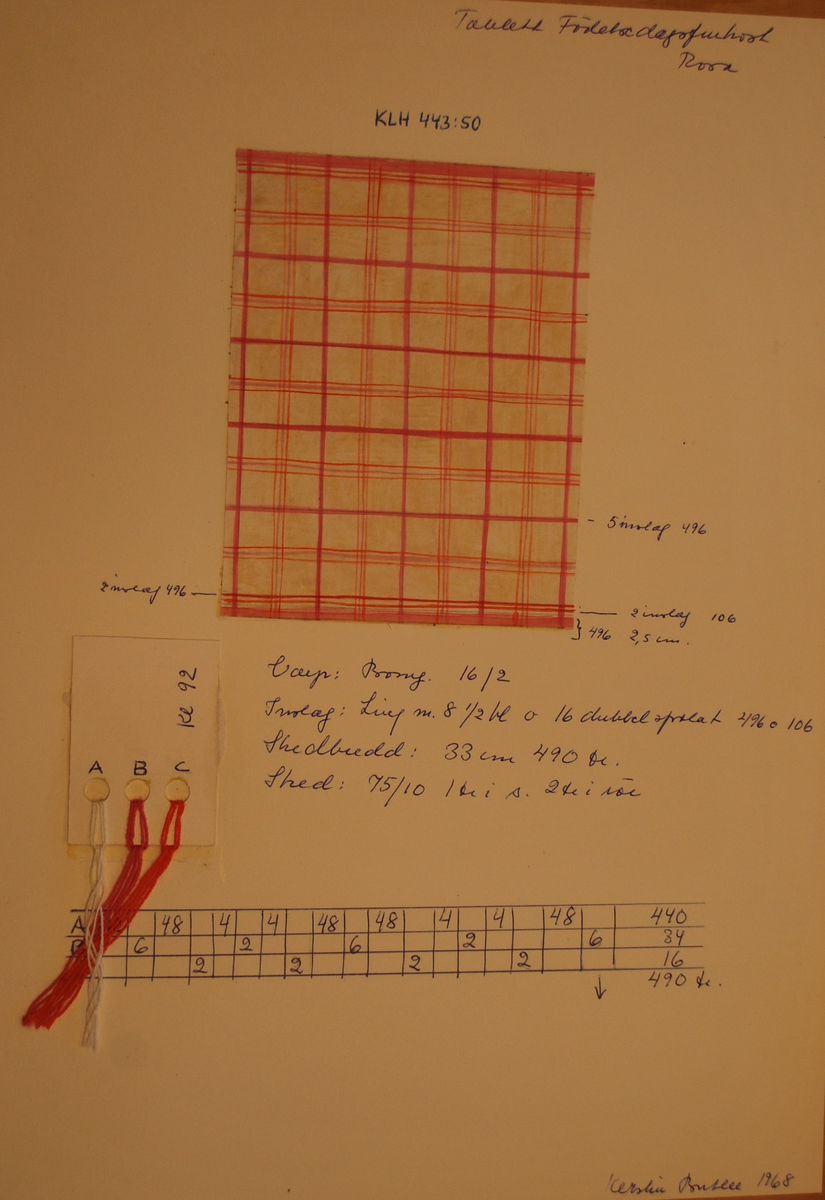 Tablett Födelsedagsfrukost
Rosa
KLH 443:50
5 inslag 496
2 inslag 496
2 inslag 106
496 2,5 cm.
Kl 92
A B C
Varp: Bomg. 16/2
Inslag: Ling m. 8 1/2 bl o 16 dubbelspolat 496 o 106
Skedbredd: 33 cm 490 tr.
Sked: 75/10 1 tr i s. 2 tr i rör
A 48 4 4 48 48 4 4 48 440
6 2 6 2 6 34
2 2 2 2 16
490 tr.
Kerstin 1968